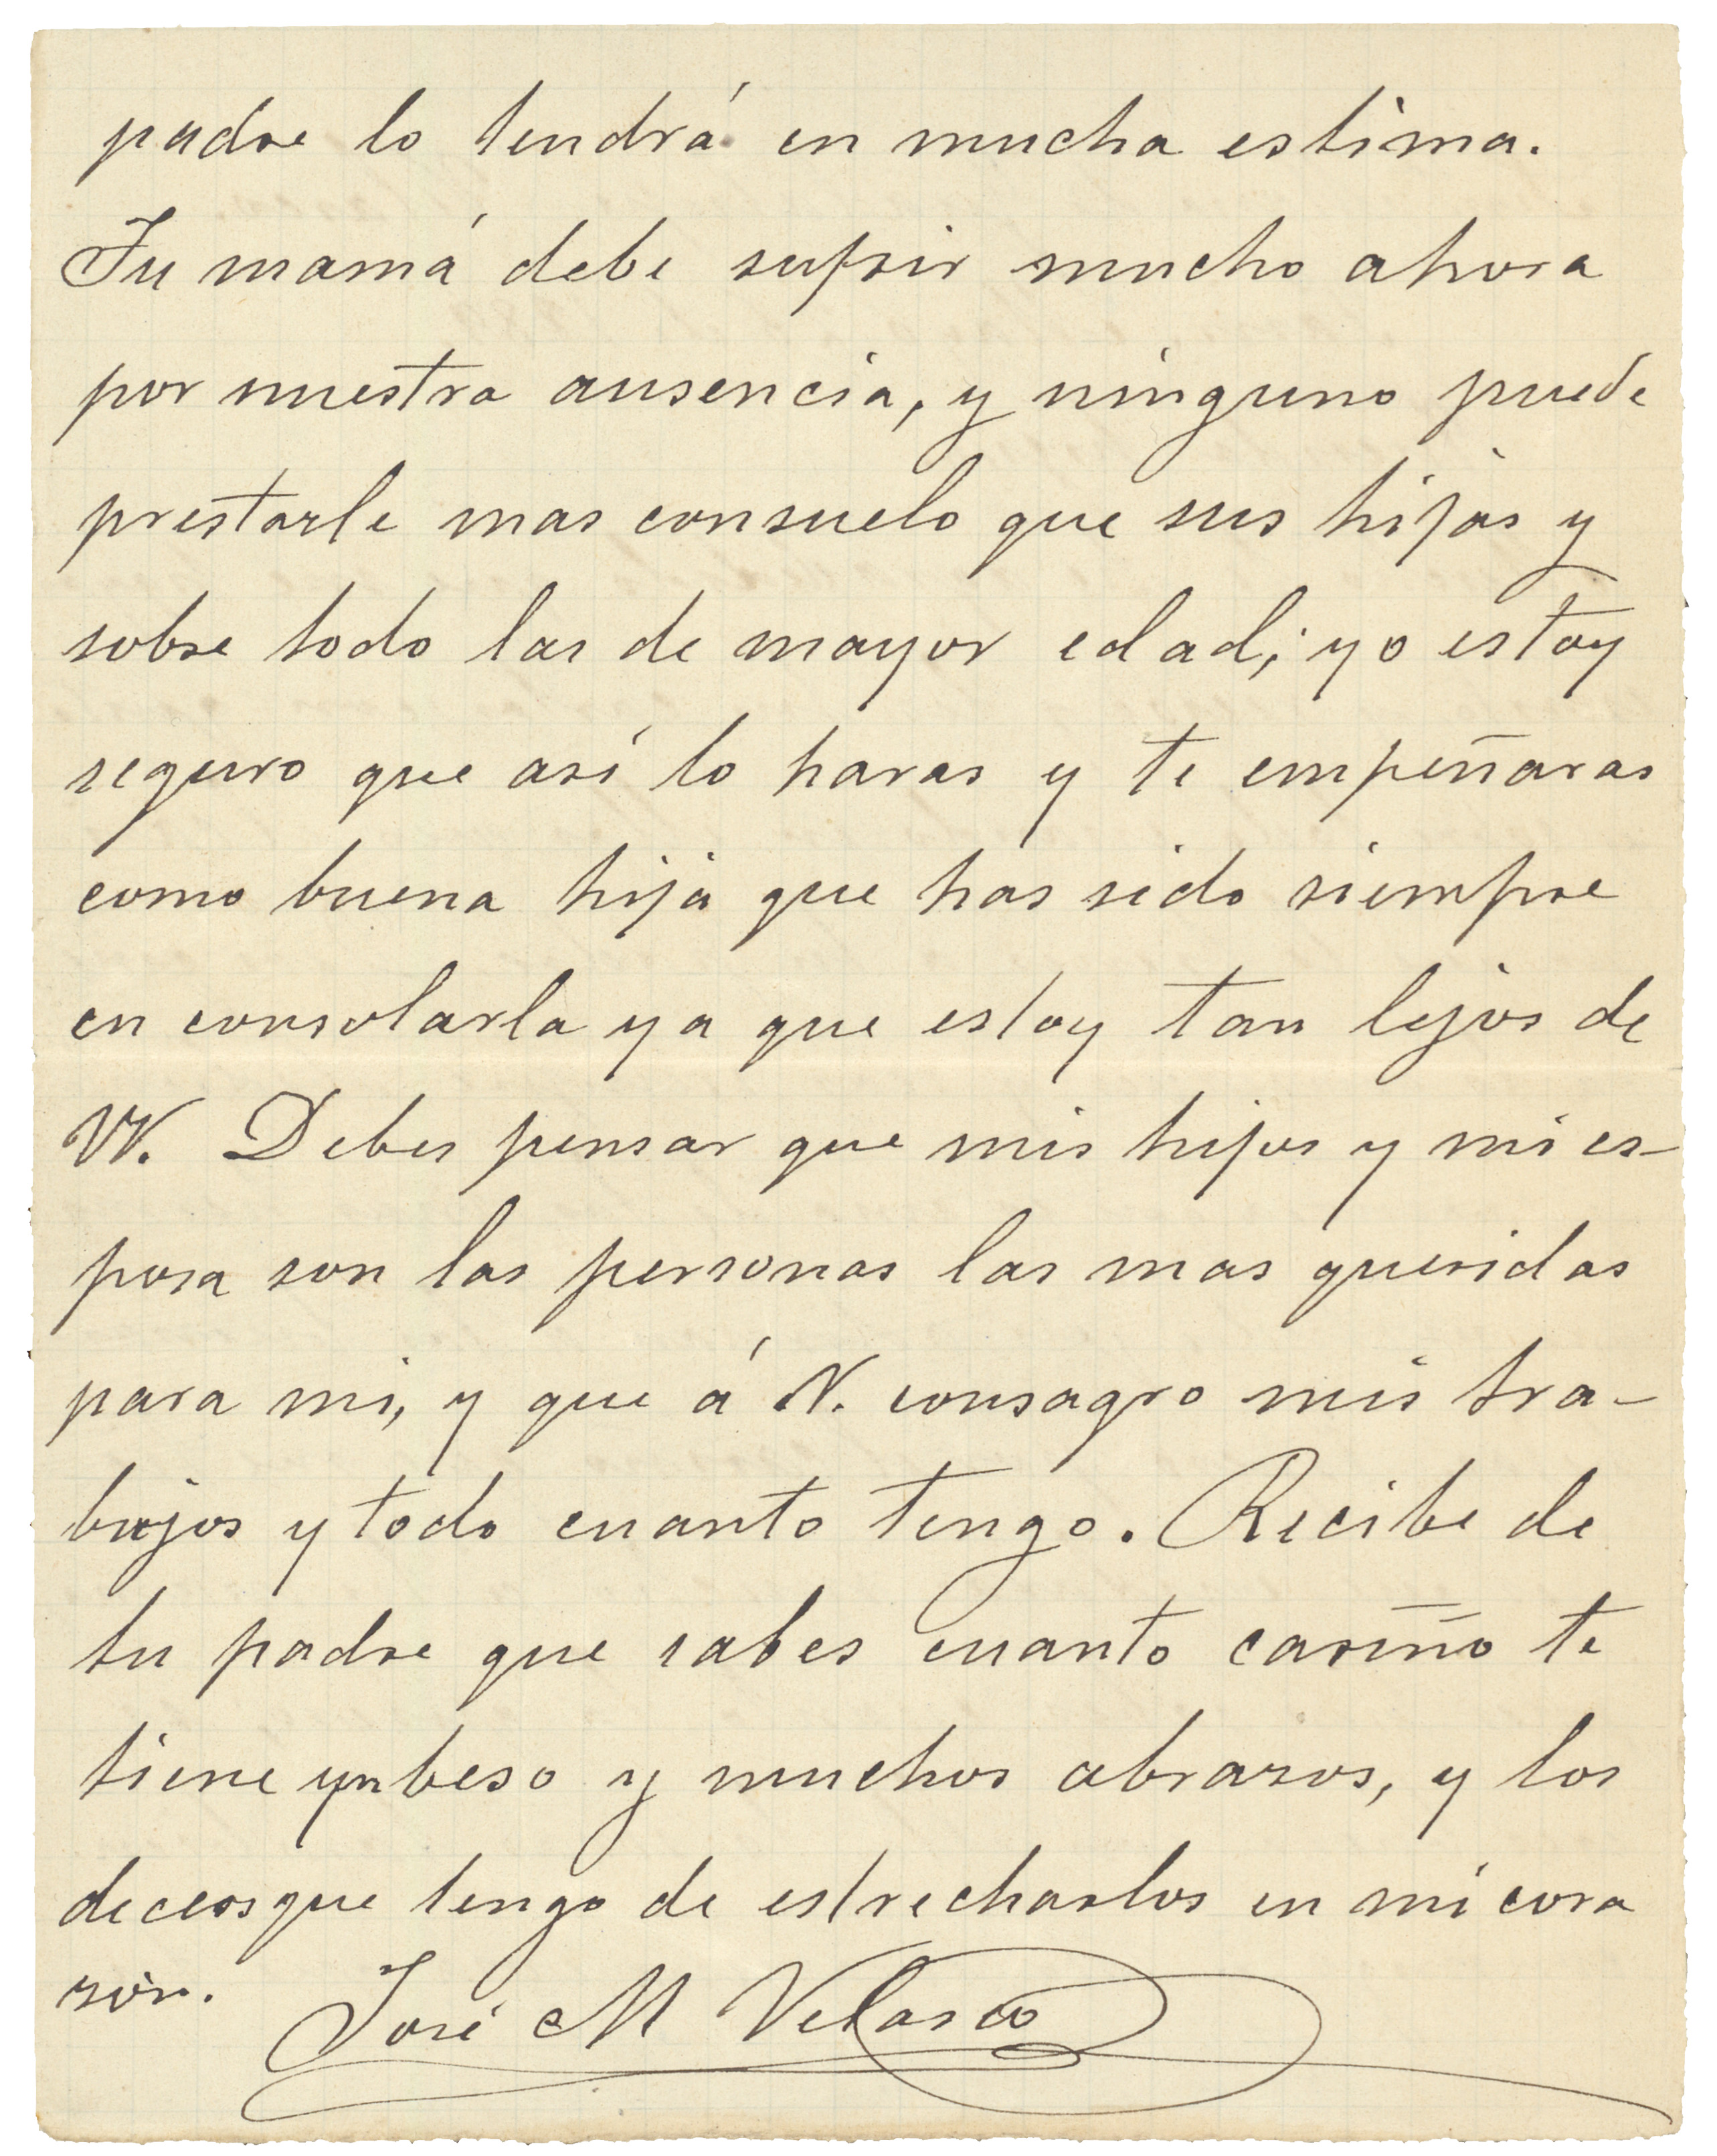 padre lo tendrá en mucha estima.
Tu mamá debe sufrir mucho ahora
por nuestra ausencia, y ninguno puede
prestarle mas consuelo que sus hijas y
sobre todo las de mayor edad; yo estoy
seguro que así lo haras y te empeñaras
como buena hija que has sido siempre
en consolarla ya que estoy tan lejos de
VV. Debes pensar que mis hijos y mi es-
posa son las personas las mas queridas
para mi, y que á V. consagro mis tra-
bajos y todo cuanto tengo. Recibe de
tu padre que sabes cuanto cariño te
tiene un beso y muchos abrazos, y los
deceos que tengo de estrecharlos en mi cora
zón.
José M Velasco